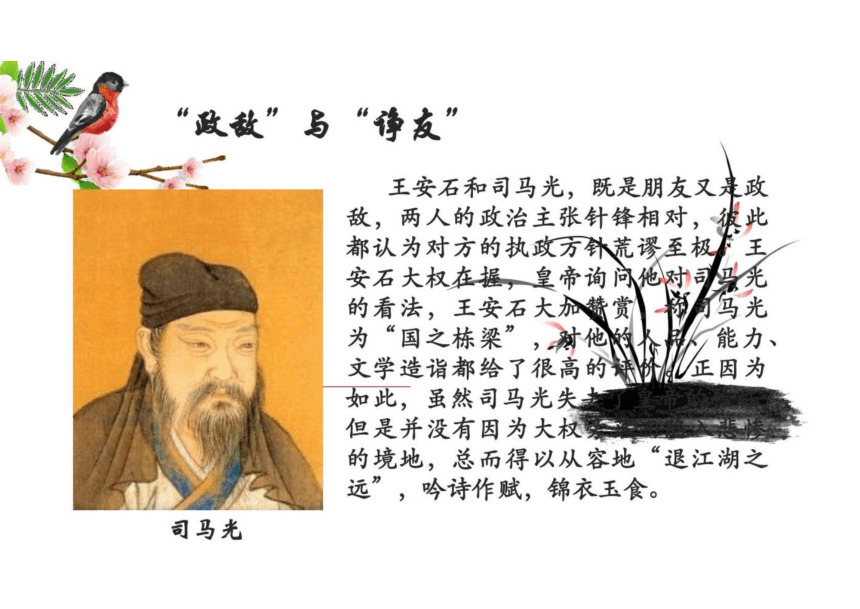 “政敌”与“诤友”
王安石和司马光，既是朋友又是政
敌，两人的政治主张针锋相对，彼此
都认为对方的执政方针荒谬至极。王
安石大权在握，皇帝询问他对司马光
的看法，王安石大加赞赏，称司马光
为“国之栋梁”，对他的人品、能力、
文学造诣都给了很高的评价。正因为
如此，虽然司马光失去了皇帝的
但是并没有因为大权 悲惨
的境地，总而得以从容地“退江湖之
远”，吟诗作赋，锦衣玉食。
司马光